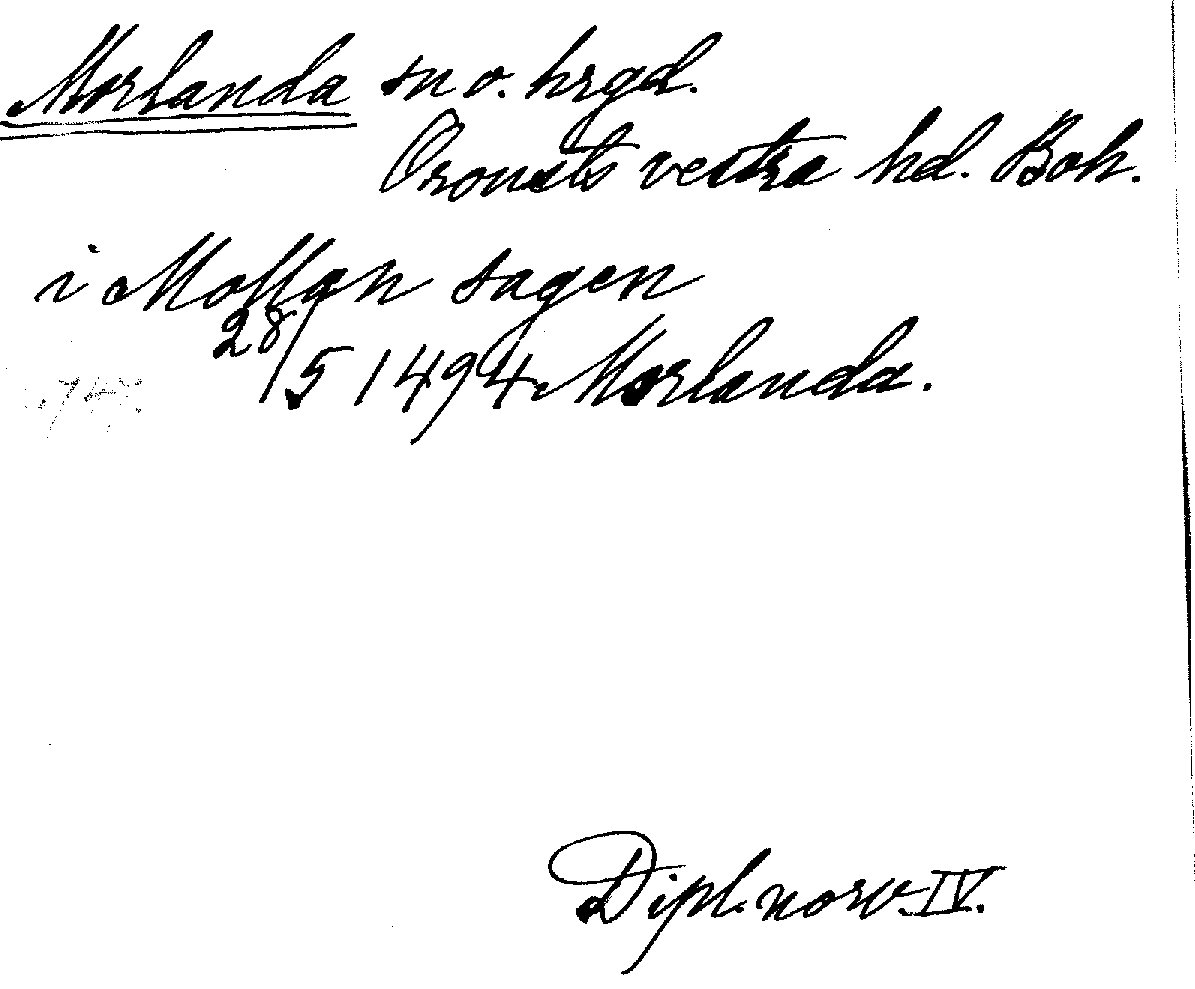 Morlanda sn o. hrgd.
Orousts vestra hd. Boh.
i Mollan sogen
28/5 1494. Morlanda.
Dipl. norv. IV.